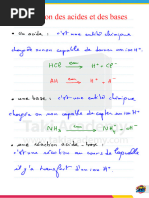 tion des acides et des bases
• un acide : c'est une entité chimique
chargée ou non capable de donner un ion H⁺.
HCl → H⁺ + Cl⁻
AH → A⁻ + H⁺
• une base : c'est une entité chimique
chargée ou non capable de capter un ion H⁺
NH₃ → NH₄⁺
• une réaction acide-base :
c'est une réaction au cours de laquelle
il y'a transfert d'un ion H⁺